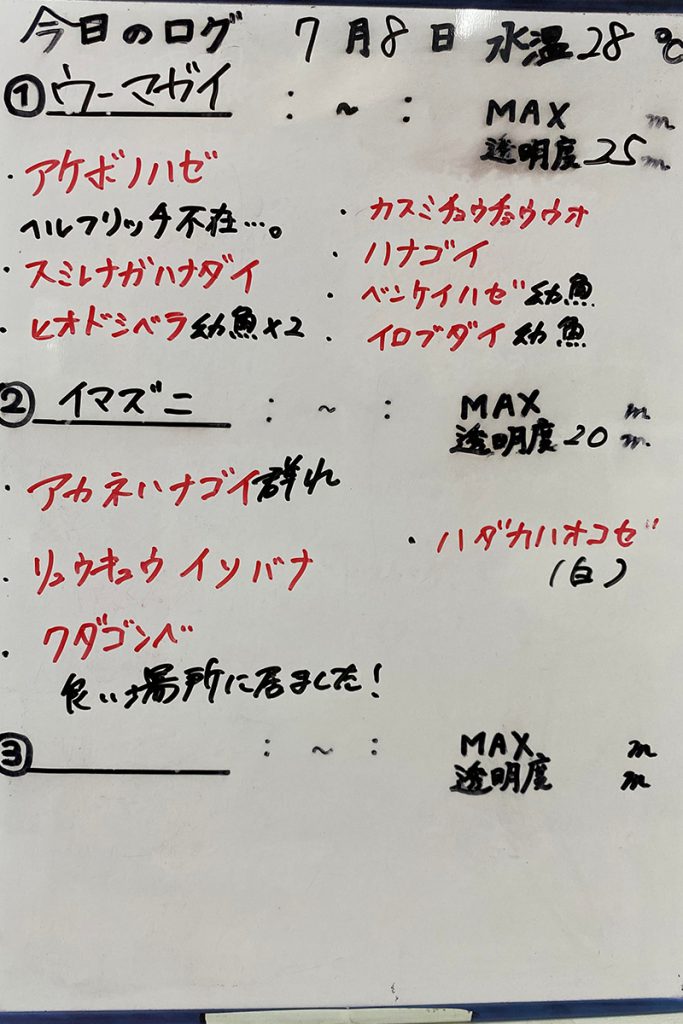 今日のログ 7月8日 水温28℃
①ウーマガイ : ~ : MAX m
透明度25m
・アケボノハゼ
ヘルフリッチ不在…。
・スミレナガハナダイ
・ヒオドシベラ幼魚×2
・カスミチョウチョウウオ
・ハナゴイ
・ベンケイハゼ幼魚
・イロブダイ幼魚
②イマズニ : ~ : MAX m
透明度20m
・アカネハナゴイ群れ
・リュウキュウイソバナ
・クダゴンベ
良い場所に居ました!
・ハダカハオコゼ
(白)
③ : ~ : MAX m
透明度 m